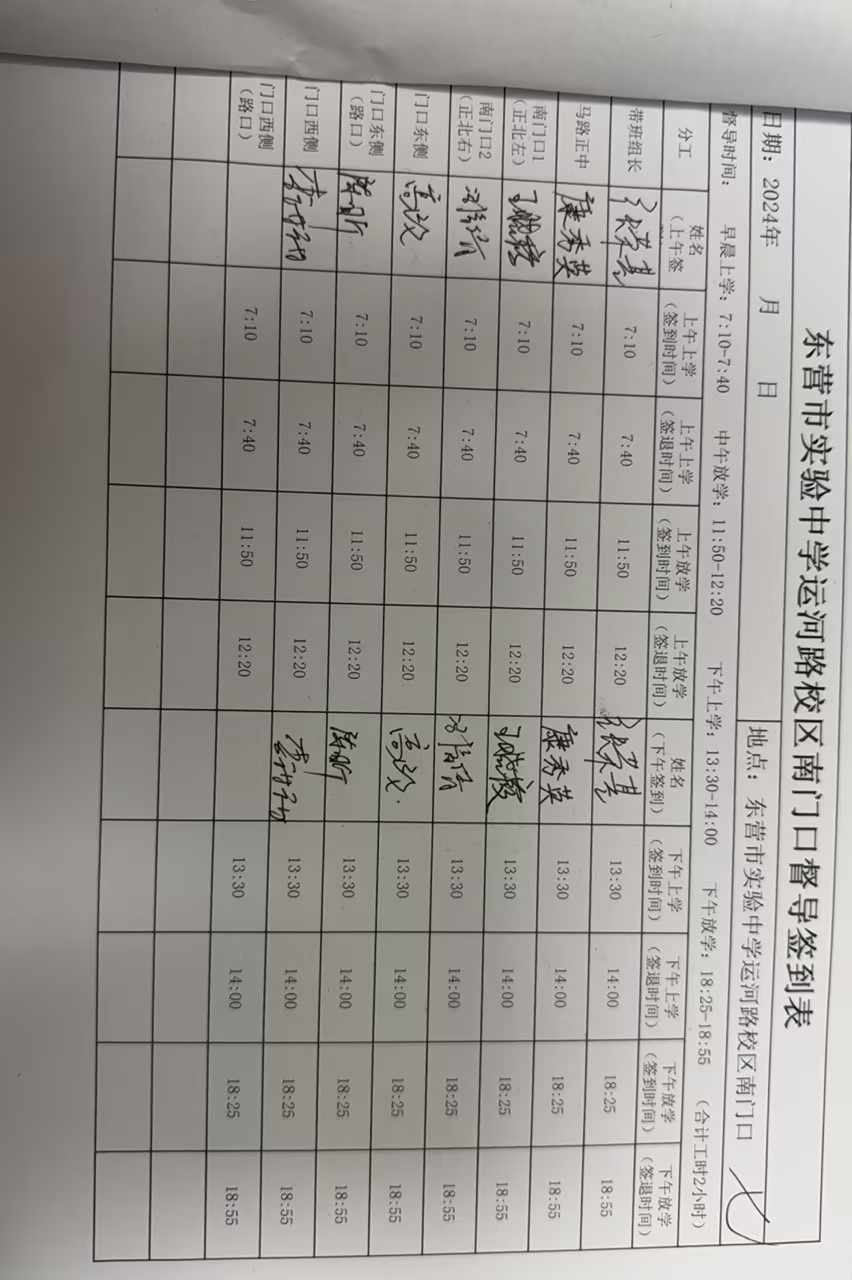 东营市实验中学运河路校区南门口督导签到表
日期：2024年 月 日 地点：东营市实验中学运河路校区南门口 七
督导时间： 早晨上学：7:10-7:40 中午放学：11:50-12:20 下午上学：13:30-14:00 下午放学：18:25-18:55 （合计工时2小时）
分工 姓名（上午签 上午上学（签到时间） 上午上学（签退时间） 上午放学（签到时间） 上午放学（签退时间） 姓名（下午签到） 下午上学（签到时间） 下午上学（签退时间） 下午放学（签到时间） 下午放学（签退时间）
带班组长 7:10 7:40 11:50 12:20 13:30 14:00 18:25 18:55
马路正中 康秀英 7:10 7:40 11:50 12:20 康秀英 13:30 14:00 18:25 18:55
南门口1（正北左） 7:10 7:40 11:50 12:20 13:30 14:00 18:25 18:55
南门口2（正北右） 7:10 7:40 11:50 12:20 13:30 14:00 18:25 18:55
门口东侧 7:10 7:40 11:50 12:20 13:30 14:00 18:25 18:55
门口东侧（路口） 陈昕 7:10 7:40 11:50 12:20 陈昕 13:30 14:00 18:25 18:55
门口西侧 7:10 7:40 11:50 12:20 13:30 14:00 18:25 18:55
门口西侧（路口） 7:10 7:40 11:50 12:20 13:30 14:00 18:25 18:55